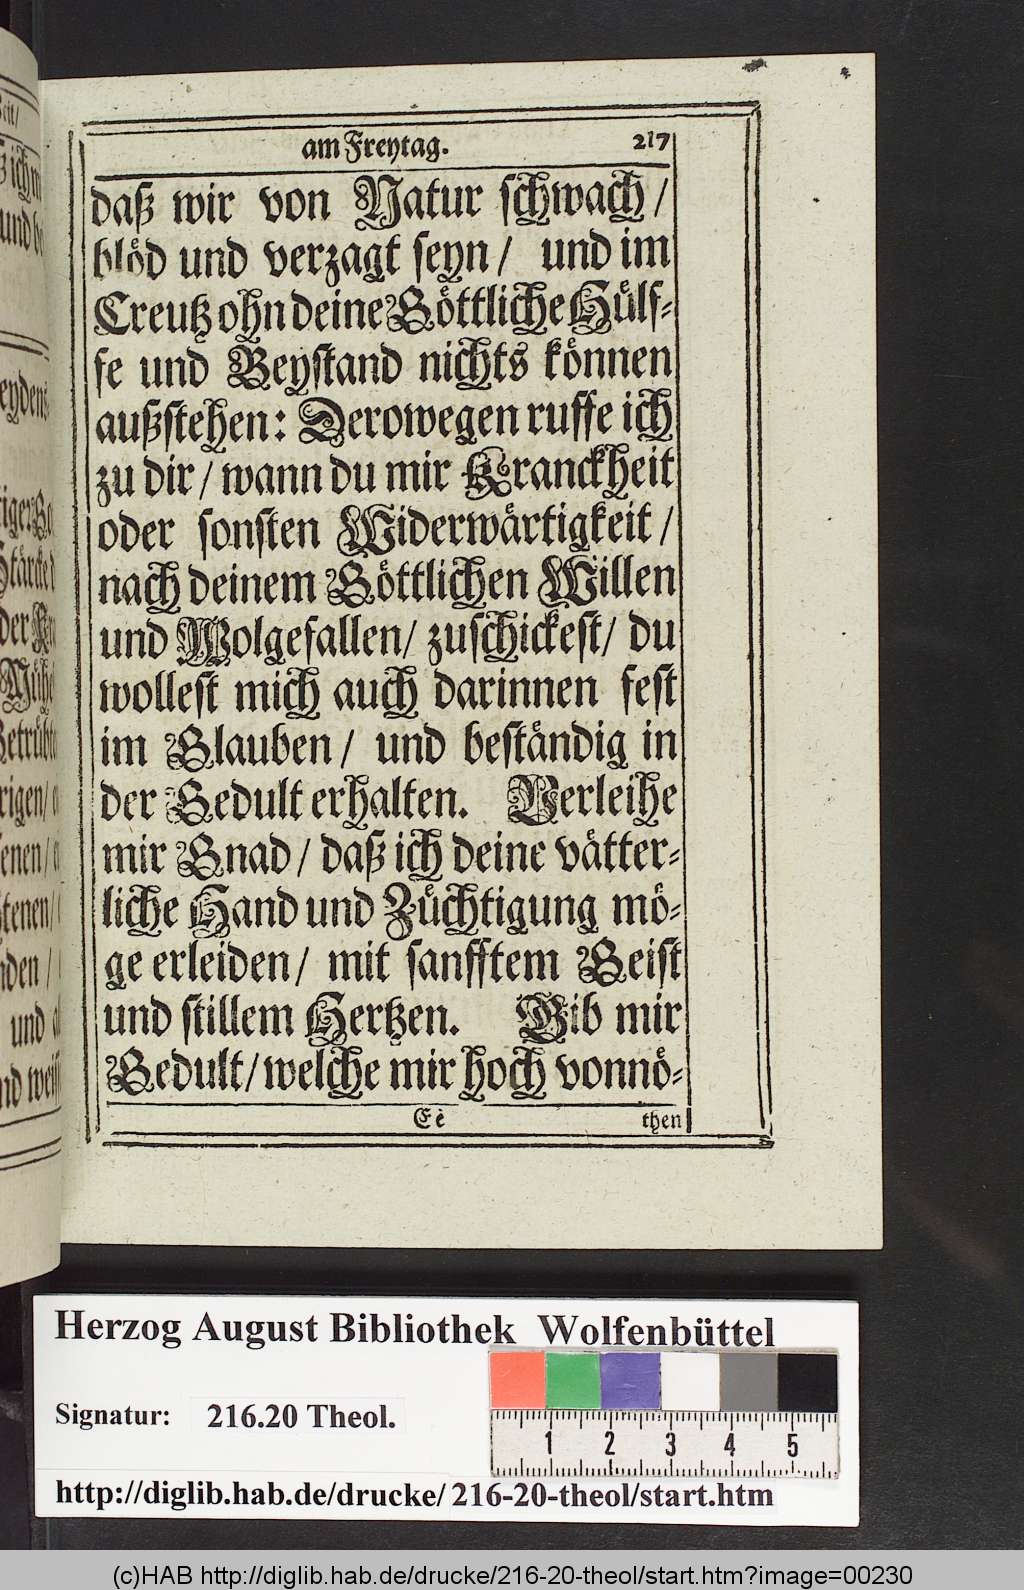 am Freytag. 217
daß wir von Natur schwach/
blöd und verzagt seyn/ und im
Creutz ohn deine Göttliche Hülf-
fe und Beystand nichts können
außstehen: Derowegen ruffe ich
zu dir/ wann du mir Kranckheit
oder sonsten Widerwärtigkeit/
nach deinem Göttlichen Willen
und Wolgefallen/ zuschickest/ du
wollest mich auch darinnen fest
im Glauben/ und beständig in
der Gedult erhalten. Verleihe
mir Gnad/ daß ich deine vätter-
liche Hand und Züchtigung mö-
ge erleiden/ mit sanfftem Geist
und stillem Hertzen. Gib mir
Gedult/ welche mir hoch vonnö-
Ee then
Herzog August Bibliothek Wolfenbüttel
Signatur: 216.20 Theol.
1 2 3 4 5
http://diglib.hab.de/drucke/216-20-theol/start.htm
(c)HAB http://diglib.hab.de/drucke/216-20-theol/start.htm?image=00230